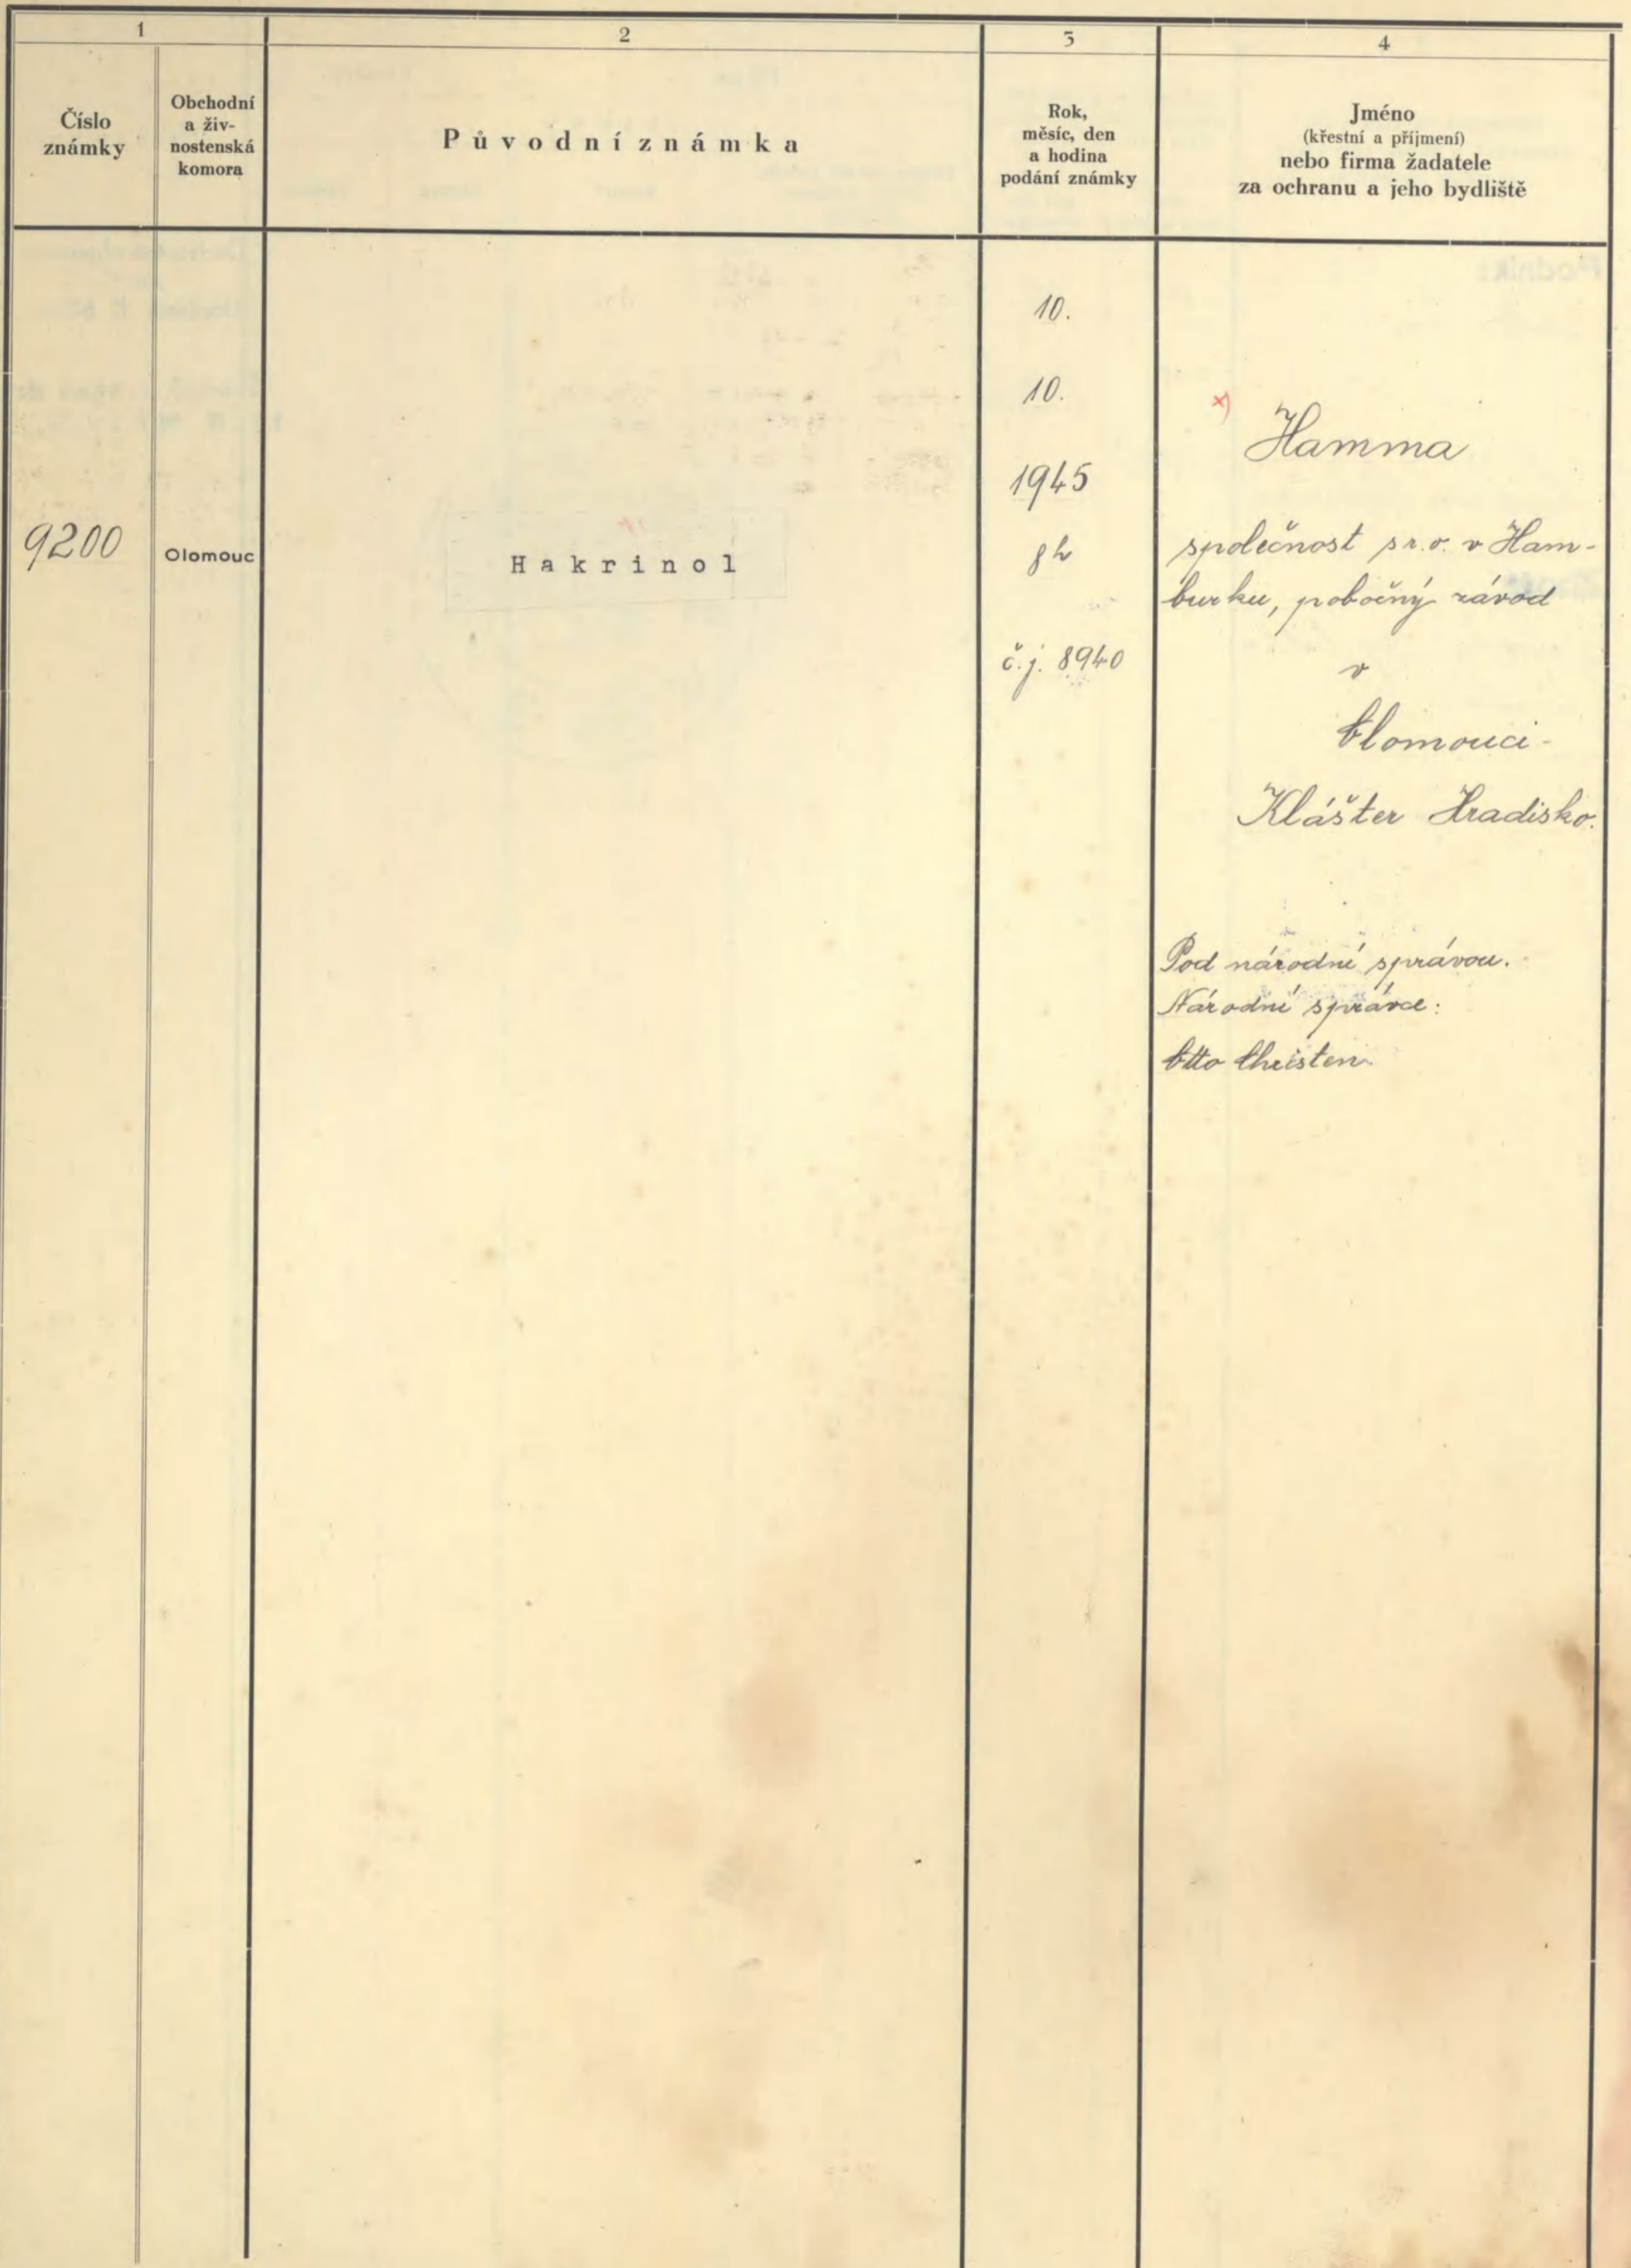 1
2
3
4
Číslo
známky
Obchodní
a živ-
nostenská
komora
Původní známka
Rok,
měsíc, den
a hodina
podání známky
Jméno
(křestní a příjmení)
nebo firma žadatele
za ochranu a jeho bydliště
9200
Olomouc
Hakrinol
10.
10.
1945
8h
č.j. 8940
x)
Hamma
společnost s r.o. v Ham-
burku, pobočný závod
v
Olomouci-
Klášter Hradisko.
Pod národní správou.
Národní správce:
Otto Christen